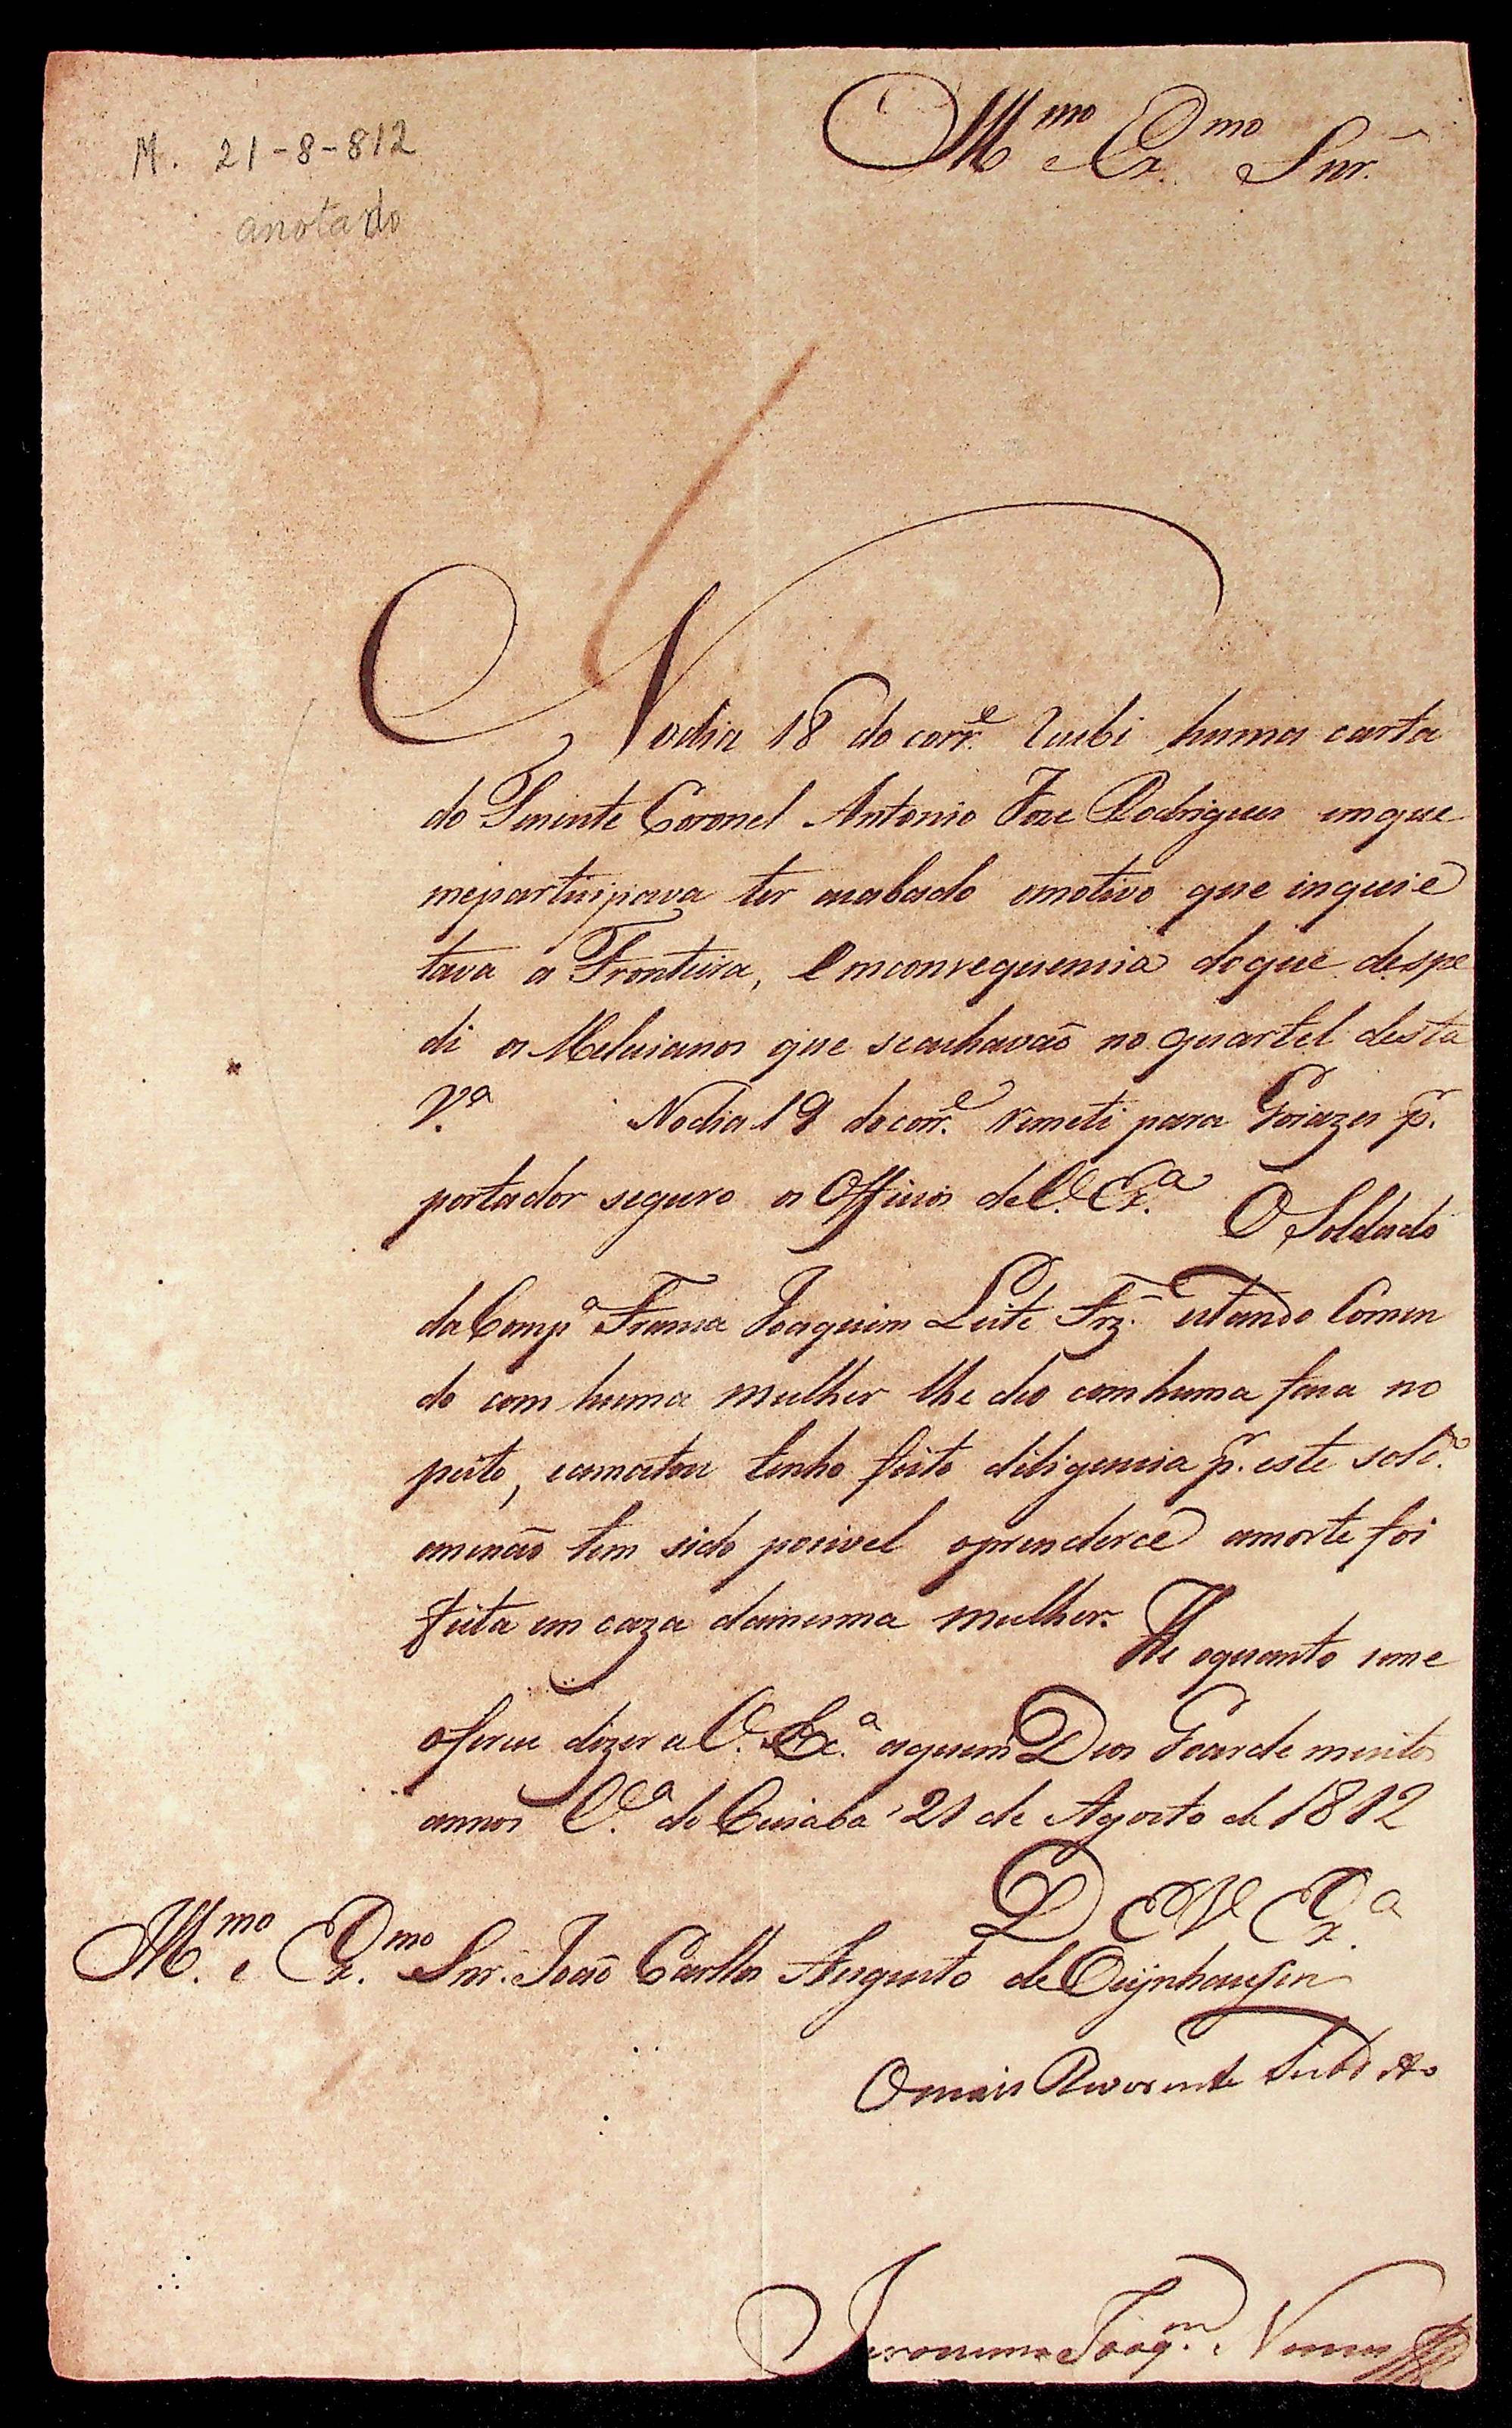 M. 21-8-812
anotado
Illmo Exmo Snr.
Nodia 18 do corre. Recebi huma carta
do Tenente Coronel Antonio Joze Rodrigues emque
meparticipava ter acabado omotivo que inquie
tava a Fronteira, Emconsequencia doque despe
di os Melicianos que seachavaõ no quartel desta
Va. Nodia 19 docorre. remeti para Goiazes pr.
portador seguro os Officios deV. Exa. O Soldado
da Compa Franca Joaquim Leite Frz. estando Comen
do com huma mulher lhe deo comhuma faca no
peito, eamatou tenho feito diligencia pr. este soldo.
enenaõ tem sido posivel oprenderce amorte foi
feita em caza damesma mulher. He oquanto seme
oferece dizer a V. Exa. aquem Deos Guarde muitos
annos Va. do Cuiaba 21 de Agosto de 1812
D E V Exa.
Illmo. e Exmo. Snr. João Carllos Augusto de Oÿnhausen
Omais Reverente Subdito
Jeronimo Joaqm. Nunes